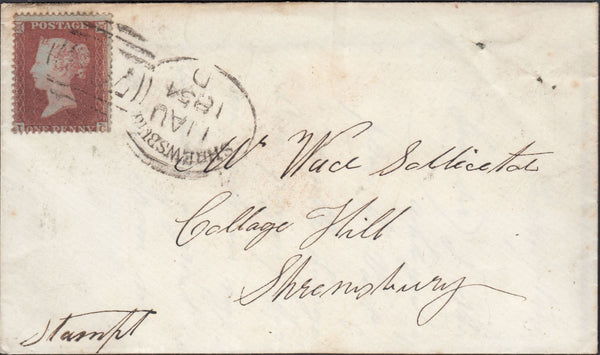 POSTAGE
ONE PENNY
SHREWSBURY
11 AU
1854
D
Mr Wace Sollicetor
Collage Hill
Shrewsbury
Stampt